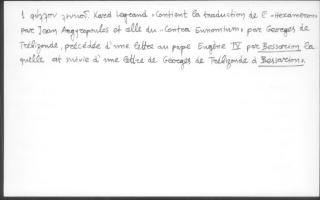 1 φύλλον χυτοῦ. Κατά Legrand «Contient la traduction de l'«Hexameron»
par Jean Argyropoulos et celle du «Contra Eunomium» par Georges de
Trébizonde, précédée d'une lettre au pape Eugène IV par Bessarion, la
quelle est suivie d'une lettre de Georges de Trébizonde à Bessarion».